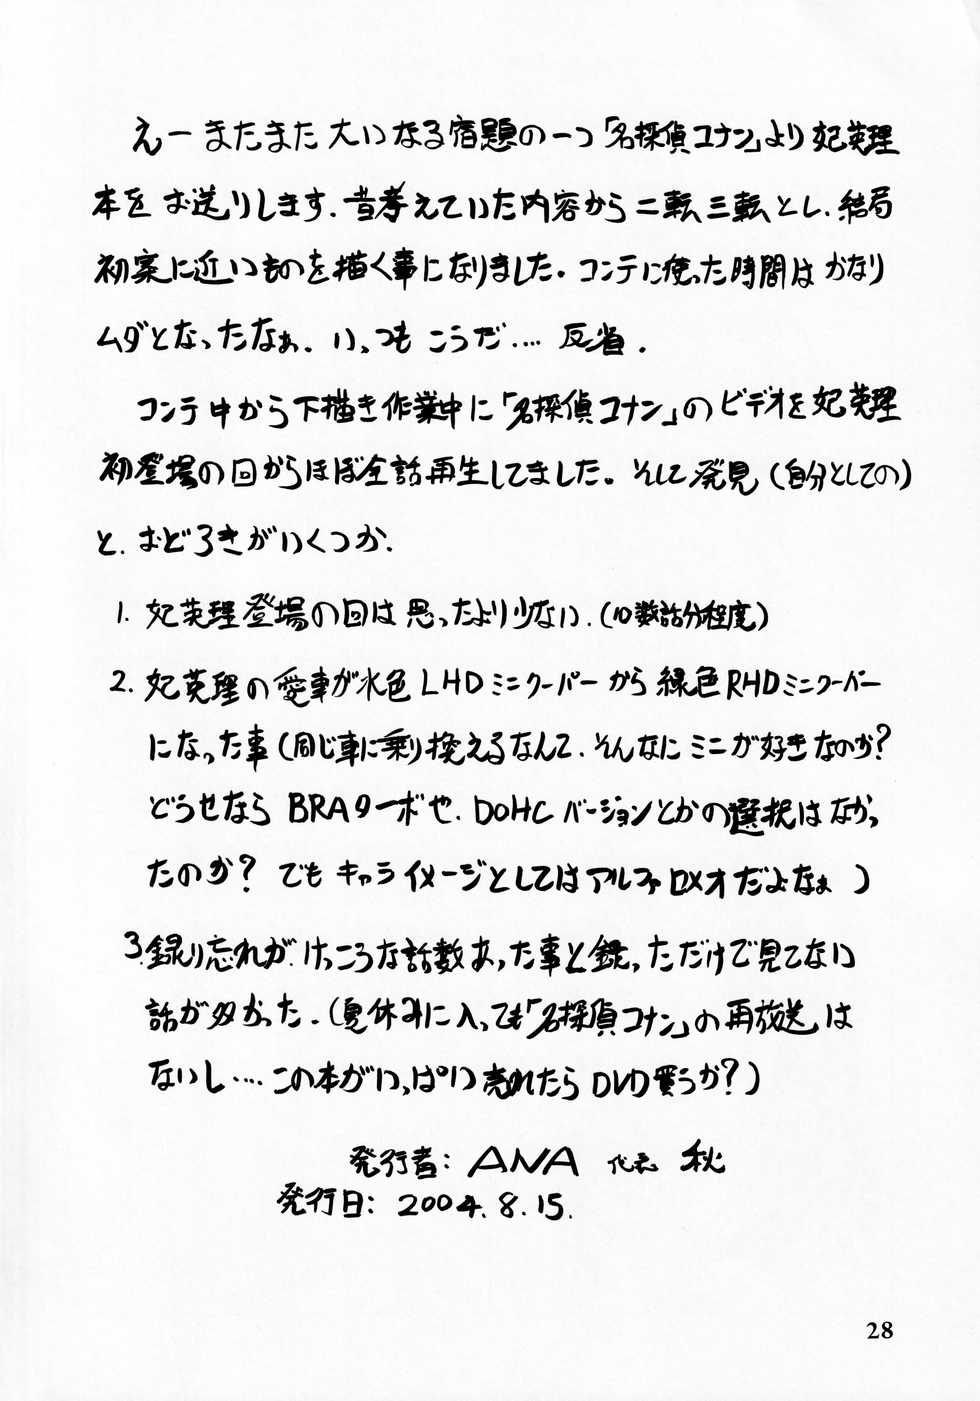 えーまたまた大いなる宿題の一つ「名探偵コナン」より妃英理
本をお送りします.昔考えていた内容から二転三転とし、結局
初案に近いものを描く事になりました。コンテに使った時間はかなり
ムダとなったなぁ.いつもこうだ….反省.
コンテ中から下描き作業中に「名探偵コナン」のビデオを妃英理
初登場の回からほぼ全話再生してました。そして発見(自分としての)
と.おどろきがいくつか.
1.妃英理登場の回は思ったより少ない.(10数話分程度)
2.妃英理の愛車が水色LHDミニクーパーから緑色RHDミニクーパー
になった事(同じ車に乗り換えるなんて.そんなにミニが好きなのか?
どうせならBRAターボや.DOHCバージョンとかの選択はなかっ
たのか?でもキャライメージとしてはアルファロメオだよなぁ)
3.録り忘れが.けっこうな話数あった事と録っただけで見てない
話が多かった.(夏休みに入っても「名探偵コナン」の再放送は
ないし….この本がいっぱい売れたらDVD買うか?)
発行者:ANA 代表 秋
発行日:2004.8.15.
28